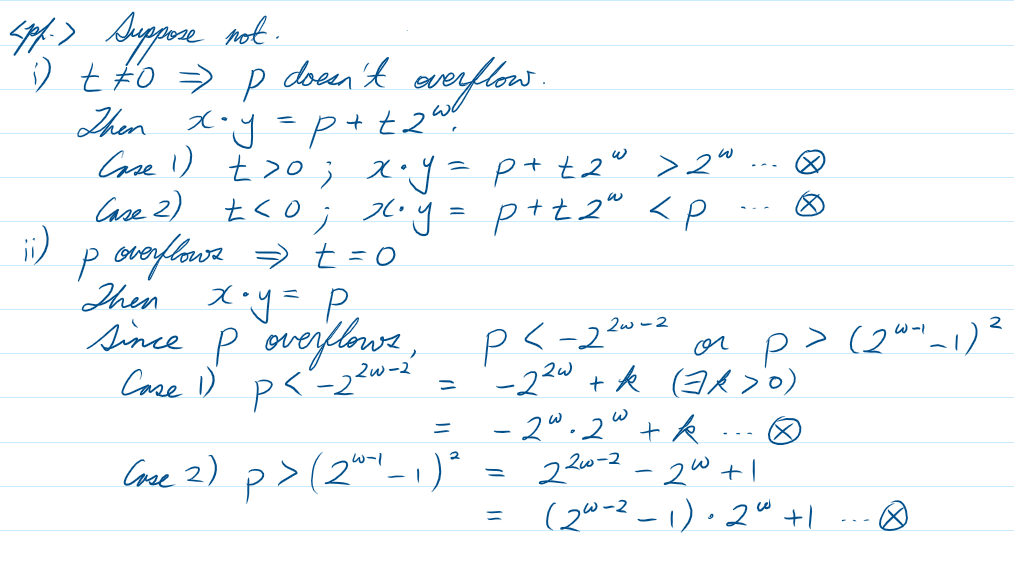 <pf.> Suppose not.
i) t ≠ 0 ⇒ p doesn't overflow.
Then x·y = p + t2^ω.
Case 1) t > 0 ; x·y = p + t2^ω > 2^ω ... ⊗
Case 2) t < 0 ; x·y = p + t2^ω < p ... ⊗
ii) p overflows ⇒ t = 0
Then x·y = p
Since p overflows, p < -2^{2ω-2} or p > (2^{ω-1} - 1)^2
Case 1) p < -2^{2ω-2} = -2^{2ω} + k (∃k > 0)
= -2^ω · 2^ω + k ... ⊗
Case 2) p > (2^{ω-1} - 1)^2 = 2^{2ω-2} - 2^ω + 1
= (2^{ω-2} - 1) · 2^ω + 1 ... ⊗